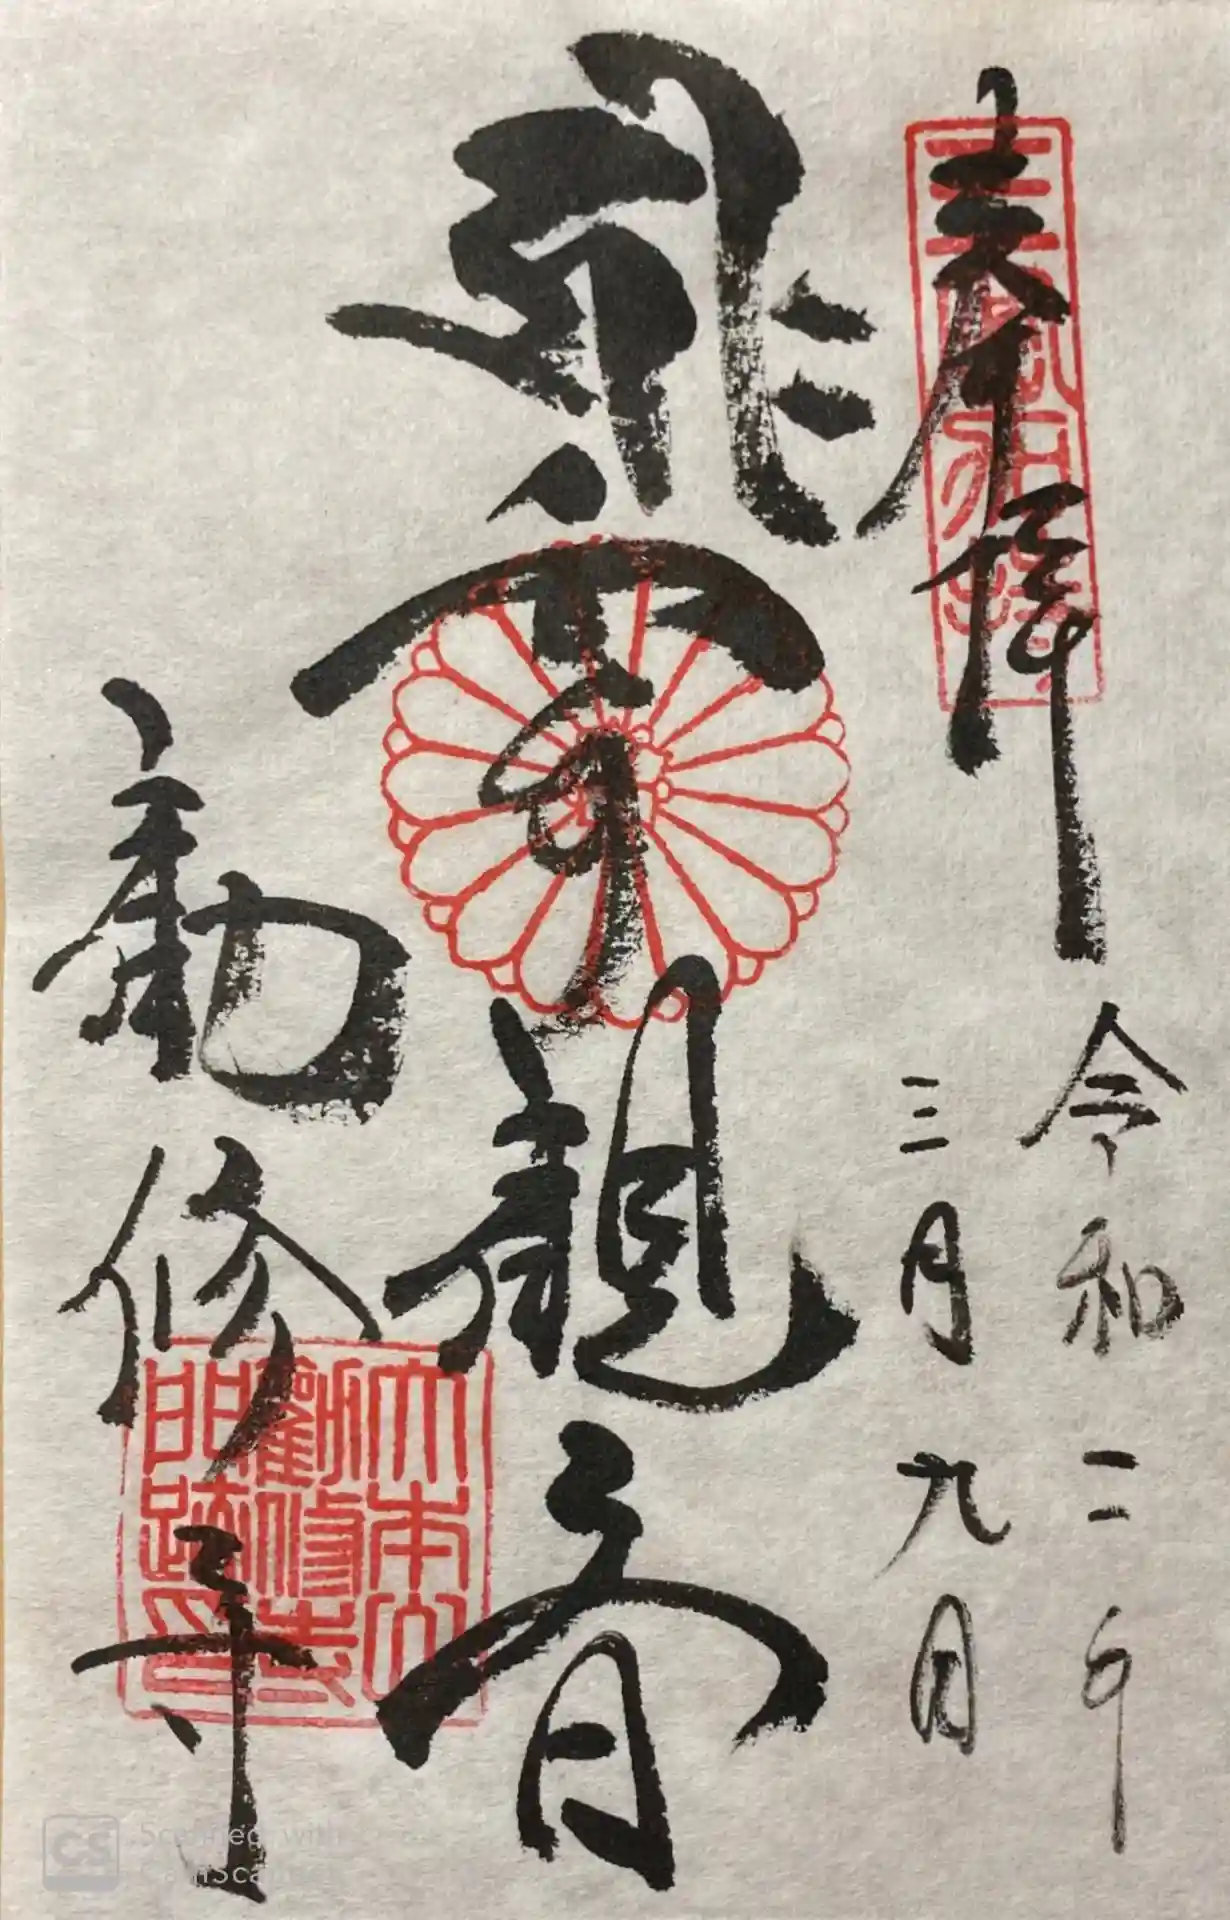 奉拝
令和二年
三月九日
飛雲観音
勧修寺
大本山
勸修寺
門跡印
CS Scanned with
CamScanner